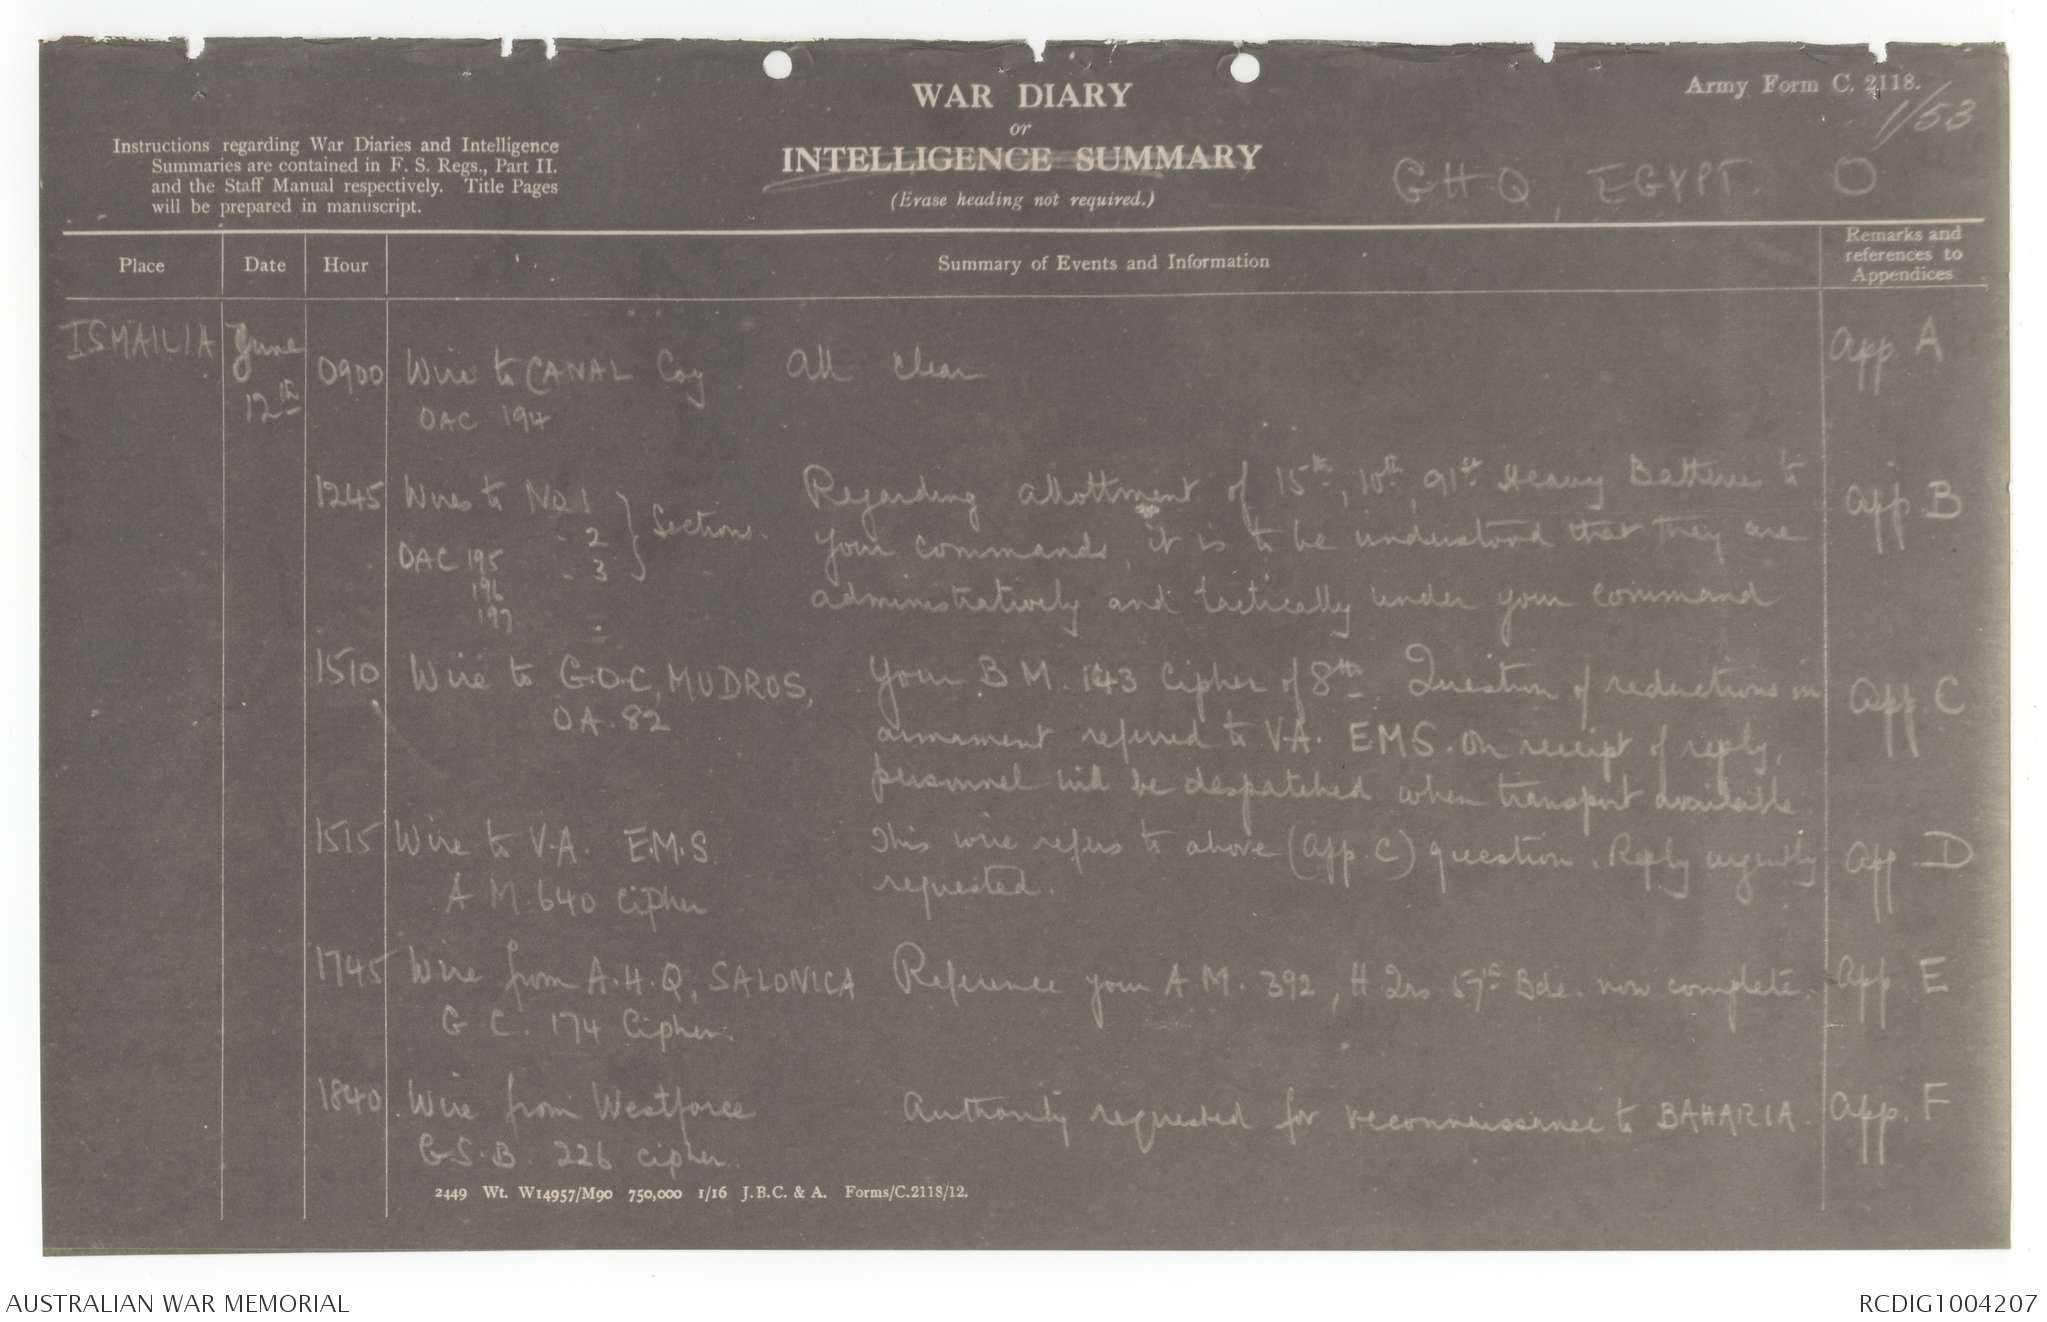 Army Form C. 2118.
1/53
WAR DIARY
or
INTELLIGENCE SUMMARY
(Erase heading not required.)
Instructions regarding War Diaries and Intelligence
Summaries are contained in F. S. Regs., Part II.
and the Staff Manual respectively. Title Pages
will be prepared in manuscript.
G.H.Q, EGYPT. O
Place Date Hour Summary of Events and Information Remarks and references to Appendices
ISMAILIA June 12th 0900 Wire to CANAL Coy. All clear App A
OAC 194
1245 Wires to No 1 Sections. Regarding allottment of 15th, 10th, 91st Heavy Batteries to App. B
- 2 your commands, it is to be understood that they are
OAC 195 - 3
196 administratively and tactically under your command
197
1510 Wire to G.O.C, MUDROS, Your B M. 143 Cipher of 8th. Question of reductions in App. C
OA. 82 armament referred to V.A. E.M.S. On receipt of reply,
personnel will be despatched when transport available.
1515 Wire to V.A. E.M.S. This wire refers to above (App. C) question. Reply urgently App. D
A M. 640 cipher requested.
1745 Wire from A.H.Q, SALONICA Reference your A M. 392, H.Qrs 57th Bde. now complete. App. E
G C. 174 Cipher.
1840 Wire from Westforce Authority requested for reconnaissance to BAHARIA. App. F
G.S.B. 226 cipher.
2449 Wt. W14957/M90 750,000 1/16 J.B.C. & A. Forms/C.2118/12.
AUSTRALIAN WAR MEMORIAL
RCDIG1004207